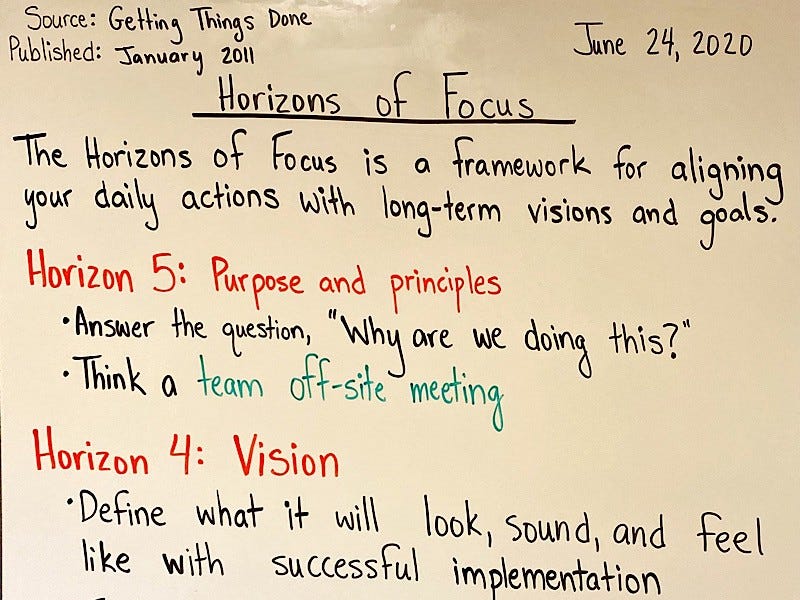 Source: Getting Things Done
Published: January 2011
June 24, 2020
Horizons of Focus
The Horizons of Focus is a framework for aligning
your daily actions with long-term visions and goals.
Horizon 5: Purpose and principles
•Answer the question, "Why are we doing this?"
•Think a team off-site meeting
Horizon 4: Vision
•Define what it will look, sound, and feel
like with successful implementation